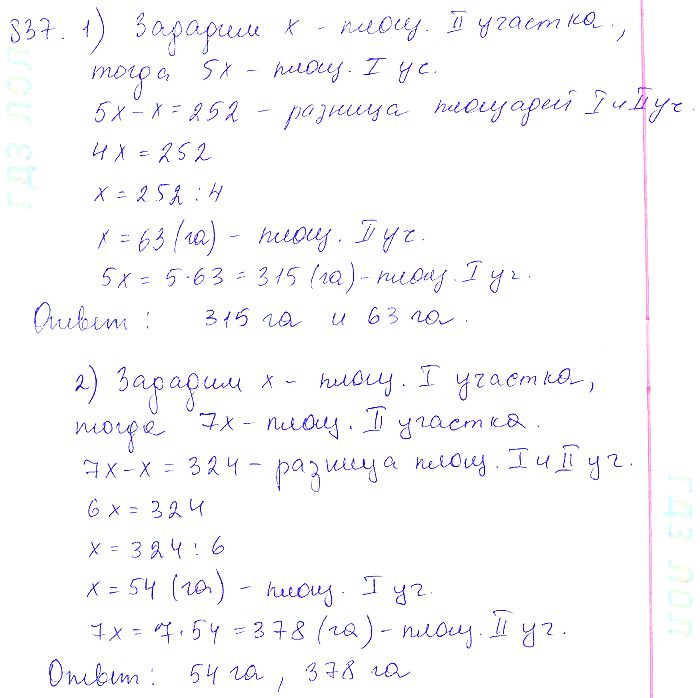 837. 1) Зададим x - площ. II участка,
тогда 5x - площ. I ус.
5x - x = 252 - разница площадей I и II уч.
4x = 252
x = 252 : 4
x = 63 (га) - площ. II уч.
5x = 5 · 63 = 315 (га) - площ. I уч.
Ответ: 315 га и 63 га.
2) Зададим x - площ. I участка,
тогда 7x - площ. II участка.
7x - x = 324 - разница площ. I и II уч.
6x = 324
x = 324 : 6
x = 54 (га) - площ. I уч.
7x = 7 · 54 = 378 (га) - площ. II уч.
Ответ: 54 га, 378 га
ГДЗ ЛОЛ
ГДЗ ЛОЛ